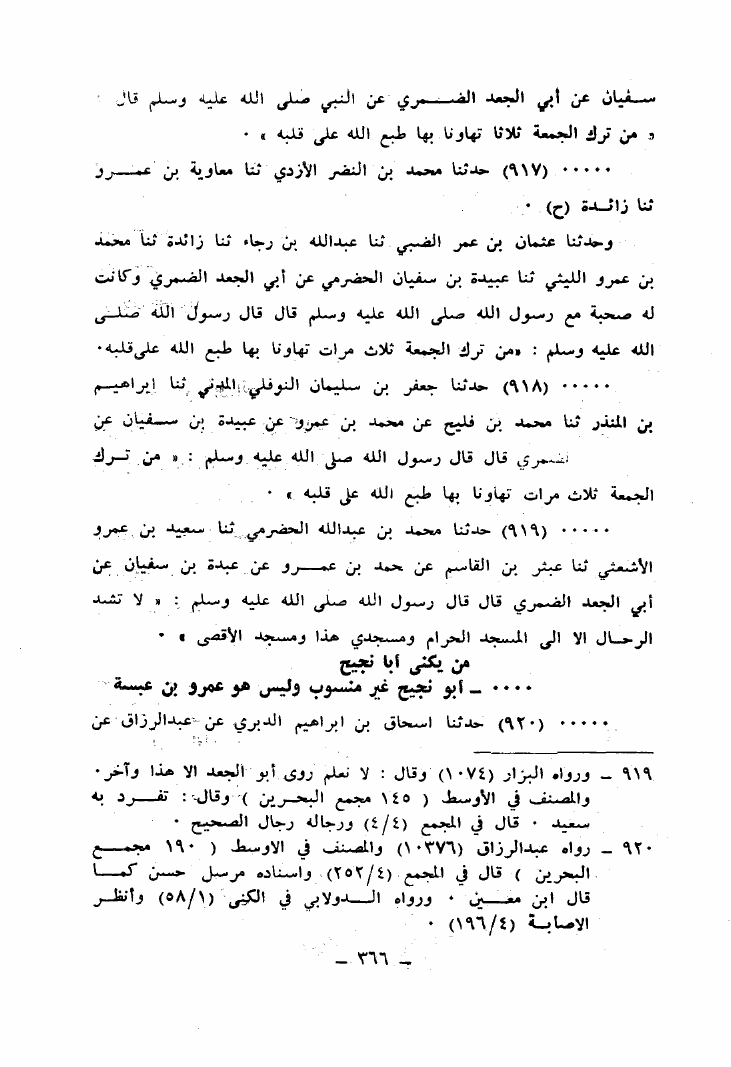 سفيان عن أبي الجعد الضمري عن النبي صلى الله عليه وسلم قال :
« من ترك الجمعة ثلاثا تهاونا بها طبع الله على قلبه » ٠
٠٠٠٠٠ (٩١٧) حدثنا محمد بن النضر الأزدي ثنا معاوية بن عمرو
ثنا زائدة (ح) ٠
وحدثنا عثمان بن عمر الضبي ثنا عبدالله بن رجاء ثنا زائدة ثنا محمد
بن عمرو الليثي ثنا عبيدة بن سفيان الحضرمي عن أبي الجعد الضمري وكانت
له صحبة مع رسول الله صلى الله عليه وسلم قال قال رسول الله صلى
الله عليه وسلم : «من ترك الجمعة ثلاث مرات تهاونا بها طبع الله على قلبه٠
٠٠٠٠٠ (٩١٨) حدثنا جعفر بن سليمان النوفلي المدني ثنا إبراهيم
بن المنذر ثنا محمد بن فليح عن محمد بن عمرو عن عبيدة بن سفيان عن
الضمري قال قال رسول الله صلى الله عليه وسلم : « من ترك
الجمعة ثلاث مرات تهاونا بها طبع الله على قلبه » ٠
٠٠٠٠٠ (٩١٩) حدثنا محمد بن عبدالله الحضرمي ثنا سعيد بن عمرو
الأشعثي ثنا عبثر بن القاسم عن حمد بن عمرو عن عبدة بن سفيان عن
أبي الجعد الضمري قال قال رسول الله صلى الله عليه وسلم : « لا تشد
الرحال الا الى المسجد الحرام ومسجدي هذا ومسجد الأقصى » ٠
من يكنى أبا نجيح
٠٠٠٠ ـ أبو نجيح غير منسوب وليس هو عمرو بن عبسة
٠٠٠٠٠ (٩٢٠) حدثنا اسحاق بن ابراهيم الدبري عن عبدالرزاق عن
٩١٩ ـ ورواه البزار (١٠٧٤) وقال : لا نعلم روى أبو الجعد الا هذا وآخر٠
والمصنف في الأوسط ( ١٤٥ مجمع البحرين ) وقال : تفرد به
سعيد ٠ قال في المجمع (٤/٤) ورجاله رجال الصحيح ٠
٩٢٠ ـ رواه عبدالرزاق (١٠٣٧٦) والمصنف في الاوسط ( ١٩٠ مجمع
البحرين ) قال في المجمع (٢٥٢/٤) واسناده مرسل حسن كما
قال ابن معين ٠ ورواه الدولابي في الكنى (٥٨/١) وأنظر
الاصابة (١٩٦/٤) ٠
ـ ٣٦٦ ـ